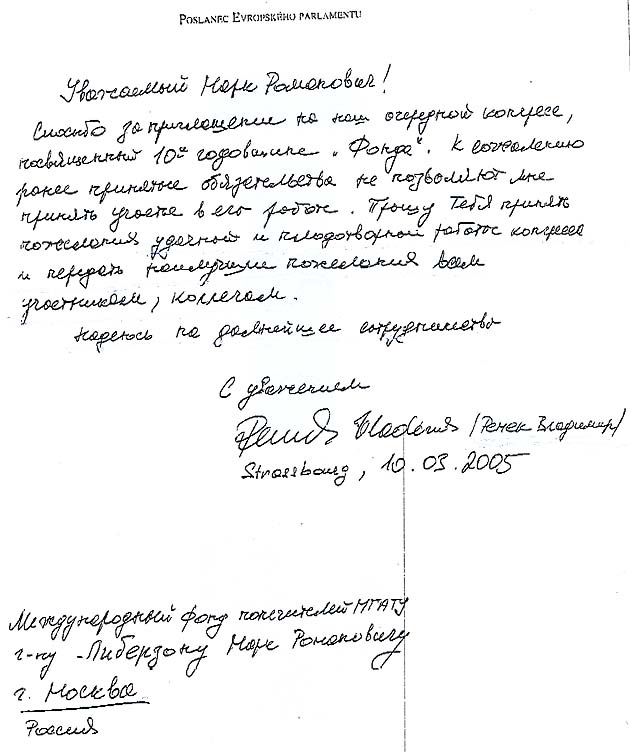 Poslanec Evropského parlamentu
Уважаемый Марк Романович!
Спосибо за приглашение на наш очередной конгресс,
посвященный 10й годовщине „Фонда". К сожалению
ранее принятые обязательства не позволяют мне
принять участе в его работе. Прошу Тебя принять
пожелания удачной и плодотворной работе конгресса
и передать наилучшие пожелания всем
участникам, коллегам.
Надеюсь на дальнейшее сотрудничество
С уважением
Remek Vladimír /Ремек Владимир/
Strassbourg, 10.03.2005
Международный фонд попечителей МГАТУ
г-ну Либерзону Марк Романовичу
г. Москва
Россия